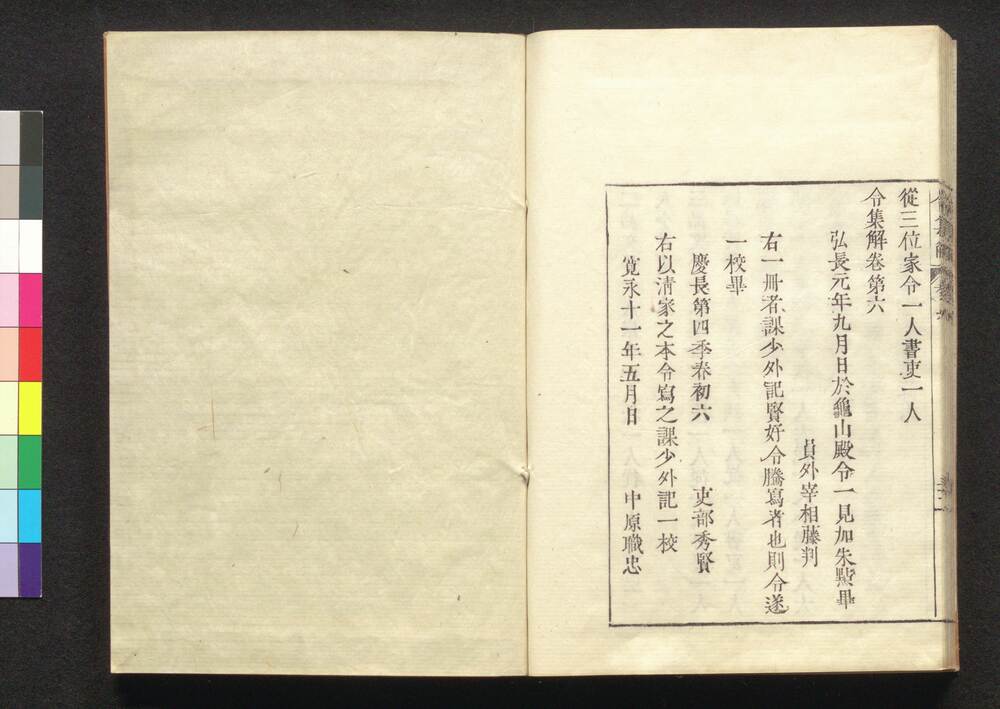 從三位家令一人書吏一人
令集解卷第六
弘長元年九月日於龜山殿令一見加朱點畢
員外宰相藤判
右一册者課少外記賢好令騰寫者也則令遂
一校畢
慶長第四季春初六 吏部秀賢
右以淸家之本令寫之課少外記一校
寬永十一年五月日 中原職忠